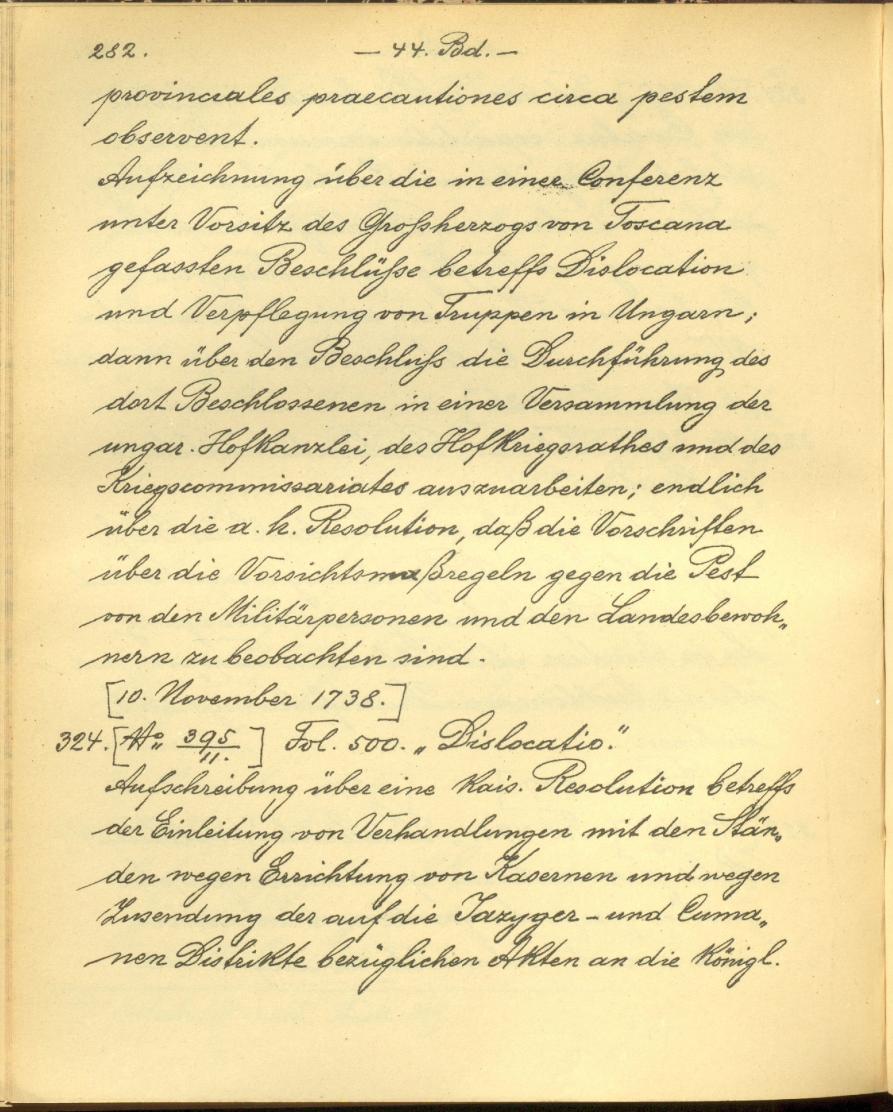 282. — 44. Bd. —
provinciales praecautiones circa pestem
observent.
Aufzeichnung über die in einer Conferenz
unter Vorsitz des Großherzogs von Toscana
gefassten Beschlüße betreffs Dislocation
und Verpflegung von Truppen in Ungarn;
dann über den Beschluß die Durchführung des
dort Beschlossenen in einer Versammlung der
ungar. Hofkanzlei, des Hofkriegsrathes und des
Kriegscommissariates auszuarbeiten; endlich
über die a. h. Resolution, daß die Vorschriften
über die Vorsichtsmaßregeln gegen die Pest
von den Militärpersonen und den Landesbewoh„
nern zu beobachten sind.
[10. November 1738.]
324. [No„ 395/11.] Fol. 500. „Dislocatio."
Aufschreibung über eine Kais. Resolution betreffs
der Einleitung von Verhandlungen mit den Stän„
den wegen Errichtung von Kasernen und wegen
Zusendung der auf die Jazyger- und Cuma„
nen Distrikte bezüglichen Akten an die Königl.